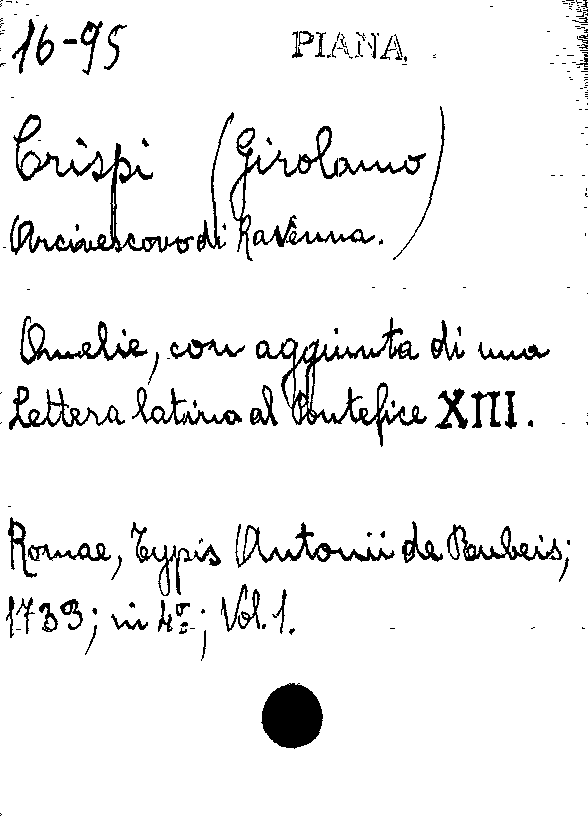 16-95 PIANA.
Crispi (Girolamo)
Arcivescovo di Ravenna.
Omelie, con aggiunta di una
Lettera latina al Pontefice XIII.
Romae, Typis Antonii de Rubeis;
1733; in 4º; Vol. 1.